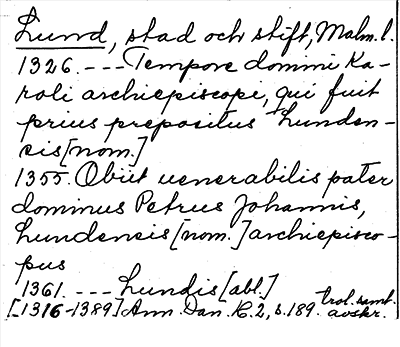 Lund, stad och stift, Malm. l.
1326. --- Tempore domini Ka-
roli archiepiscopi, qui fuit
prius prepositus Lunden-
cis [nom.]
1355. Obiit uenerabilis pater
dominus Petrus Johannis,
Lundencis [nom.] archiepisco-
pus
1361. --- Lundis [abl.]
[1316-1389] Ann. Dan. R. 2, s. 189. trol. samt. avskr.